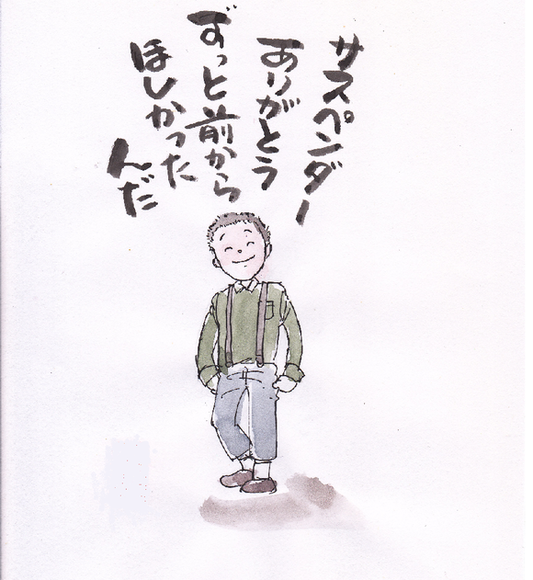 サスペンダー
ありがとう
ずっと前から
ほしかった
んだ